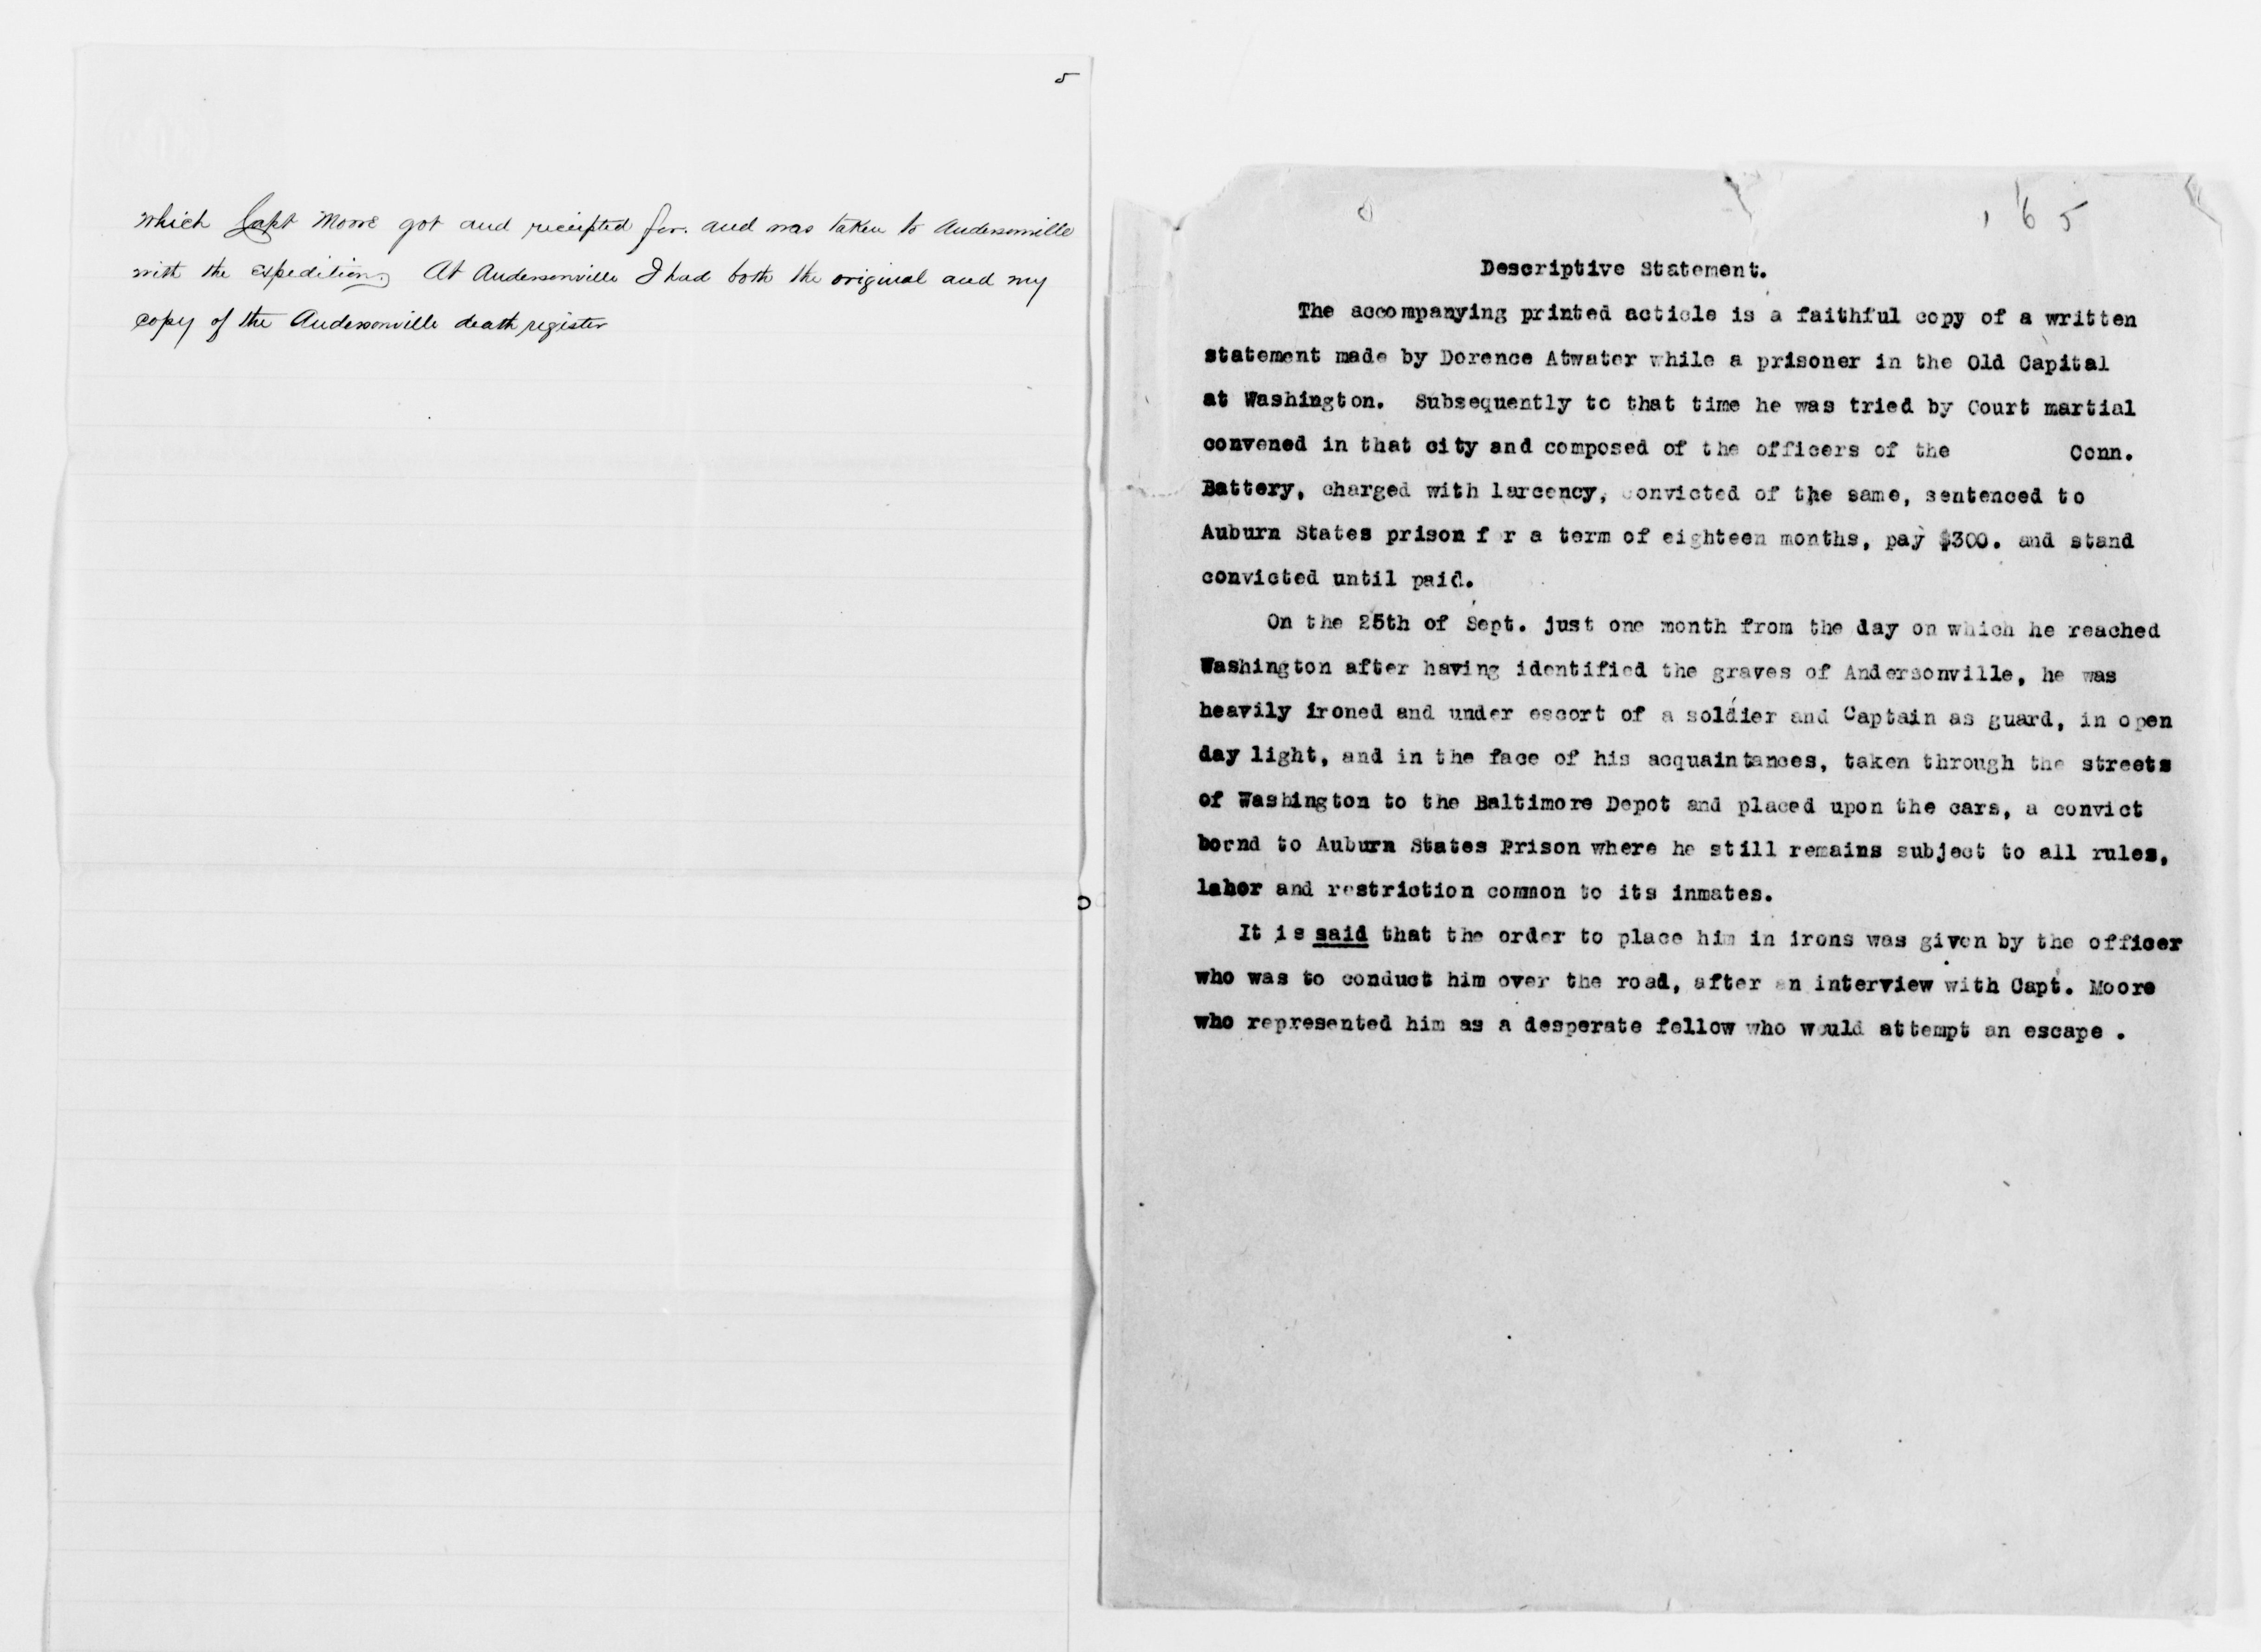 5
which Capt Moore got and receipted for. and was taken to Andersonville
with the expedition. At Andersonville I had both the original and my
copy of the Andersonville death register
165
Descriptive Statement.
The accompanying printed acticle is a faithful copy of a written
statement made by Dorence Atwater while a prisoner in the Old Capital
at Washington. Subsequently to that time he was tried by Court martial
convened in that city and composed of the officers of the Conn.
Battery, charged with larcency, convicted of the same, sentenced to
Auburn States prison f r a term of eighteen months, pay $300. and stand
convicted until paid.
On the 25th of Sept. just one month from the day on which he reached
Washington after having identified the graves of Andersonville, he was
heavily ironed and under escort of a soldier and Captain as guard, in open
day light, and in the face of his acquaintances, taken through the streets
of Washington to the Baltimore Depot and placed upon the cars, a convict
bornd to Auburn States Prison where he still remains subject to all rules,
labor and restriction common to its inmates.
It is said that the order to place him in irons was given by the officer
who was to conduct him over the road, after an interview with Capt. Moore
who represented him as a desperate fellow who would attempt an escape .